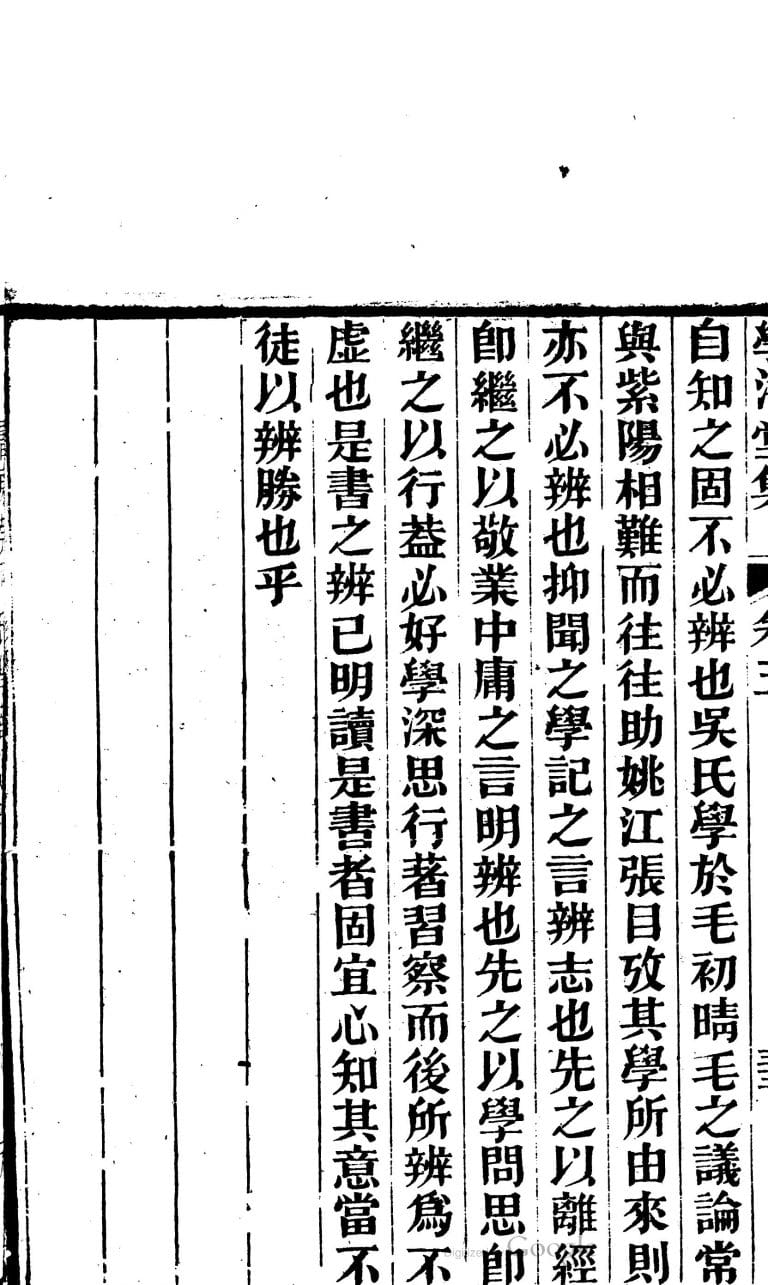 學海堂集 卷三
自知之固不必辨也吳氏學於毛初晴毛之議論常
與紫陽相難而往往助姚江張目攷其學所由來則
亦不必辨也抑聞之學記之言辨志也先之以離經
卽繼之以敬業中庸之言明辨也先之以學問思卽
繼之以行葢必好學深思行著習察而後所辨爲不
虛也是書之辨已明讀是書者固宜心知其意當不
徒以辨勝也乎
Digitized by Google